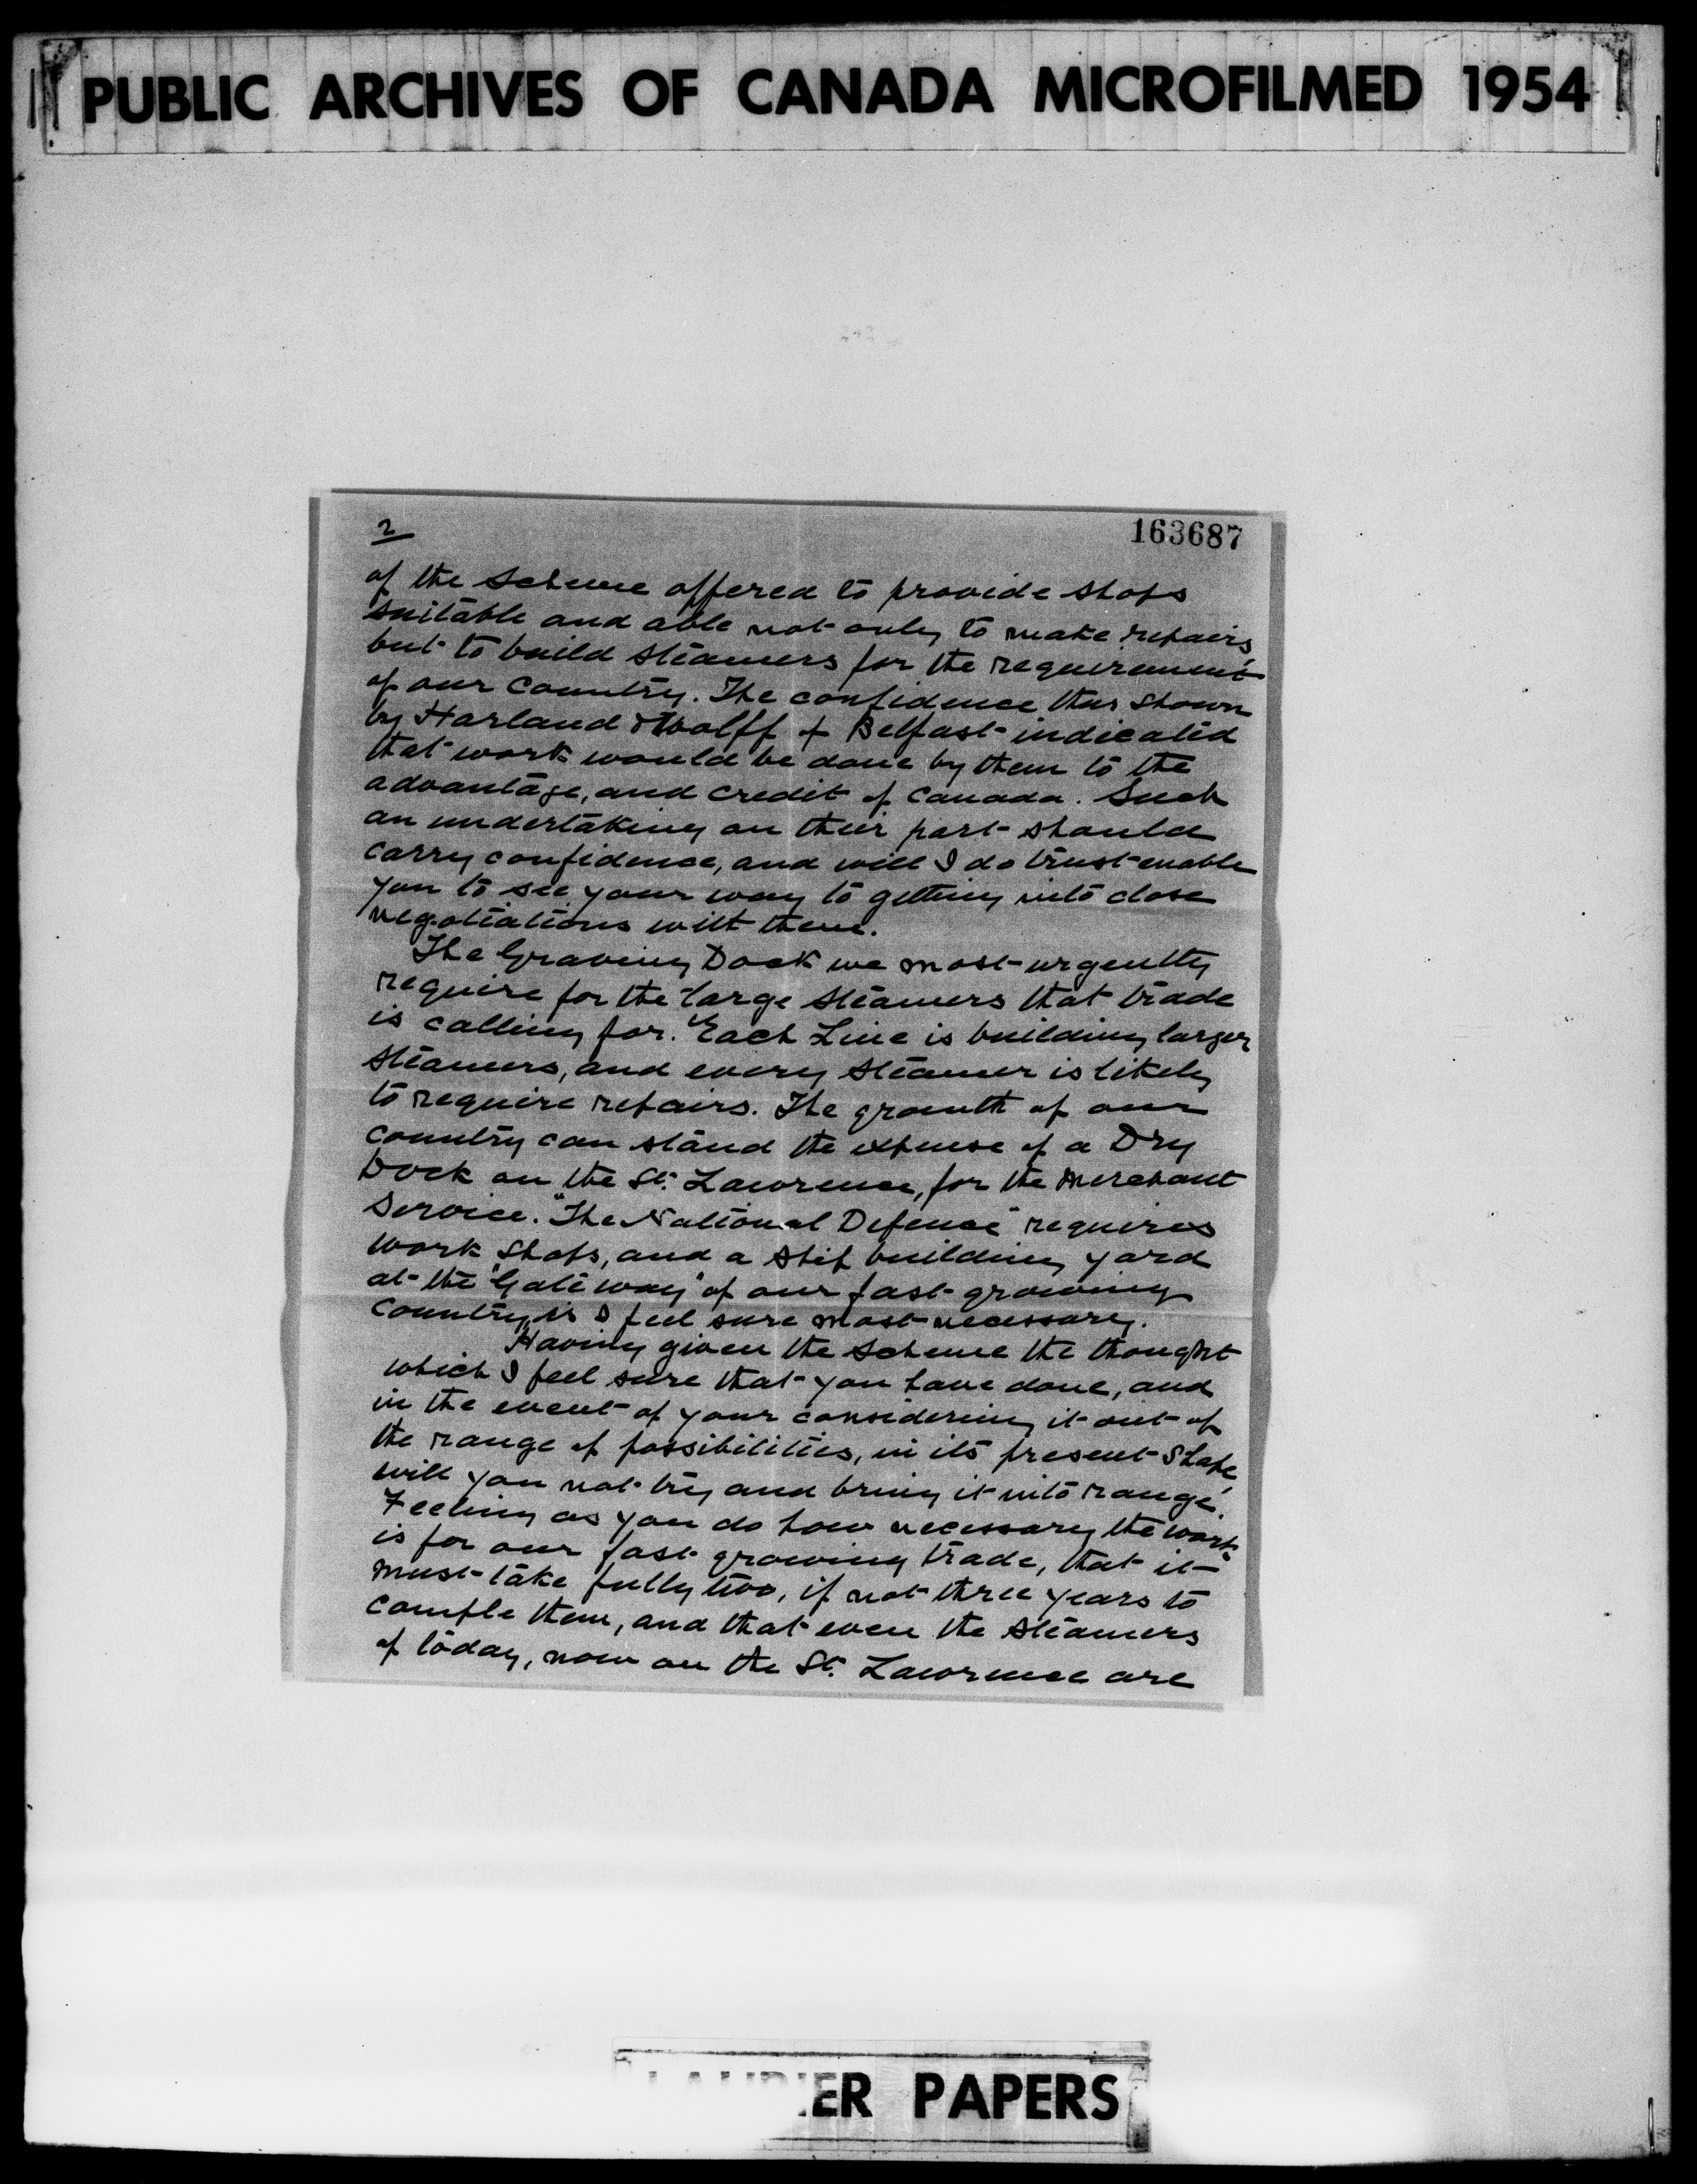 PUBLIC ARCHIVES OF CANADA MICROFILMED 1954
2
163687
of the scheme offered to provide shops
suitable and able not only to make repairs
but to build steamers for the requirement
of our country. The confidence thus shown
by Harland & Wolff of Belfast indicated
that work would be done by them to the
advantage, and credit of Canada. Such
an undertaking on their part should
carry confidence, and will I do trust enable
you to see your way to getting into close
negotiations with them.
The Graving Dock we most urgently
require for the large steamers that trade
is calling for. Each Line is building larger
steamers, and every steamer is likely
to require repairs. The growth of our
country can stand the expense of a Dry
Dock on the St. Lawrence, for the Merchant
Service. "The National Defence" requires
work shops, and a ship building yard
at the "Gateway" of our fast growing
country, is I feel sure most necessary.
Having given the scheme the thought
which I feel sure that you have done, and
in the event of your considering it out of
the range of possibilities, in its present shape
will you not try and bring it into range.
Feeling as you do how necessary the work
is for our fast growing trade, that it
must take fully two, if not three years to
comple them, and that even the steamers
of today, now on the St. Lawrence are
ER PAPERS